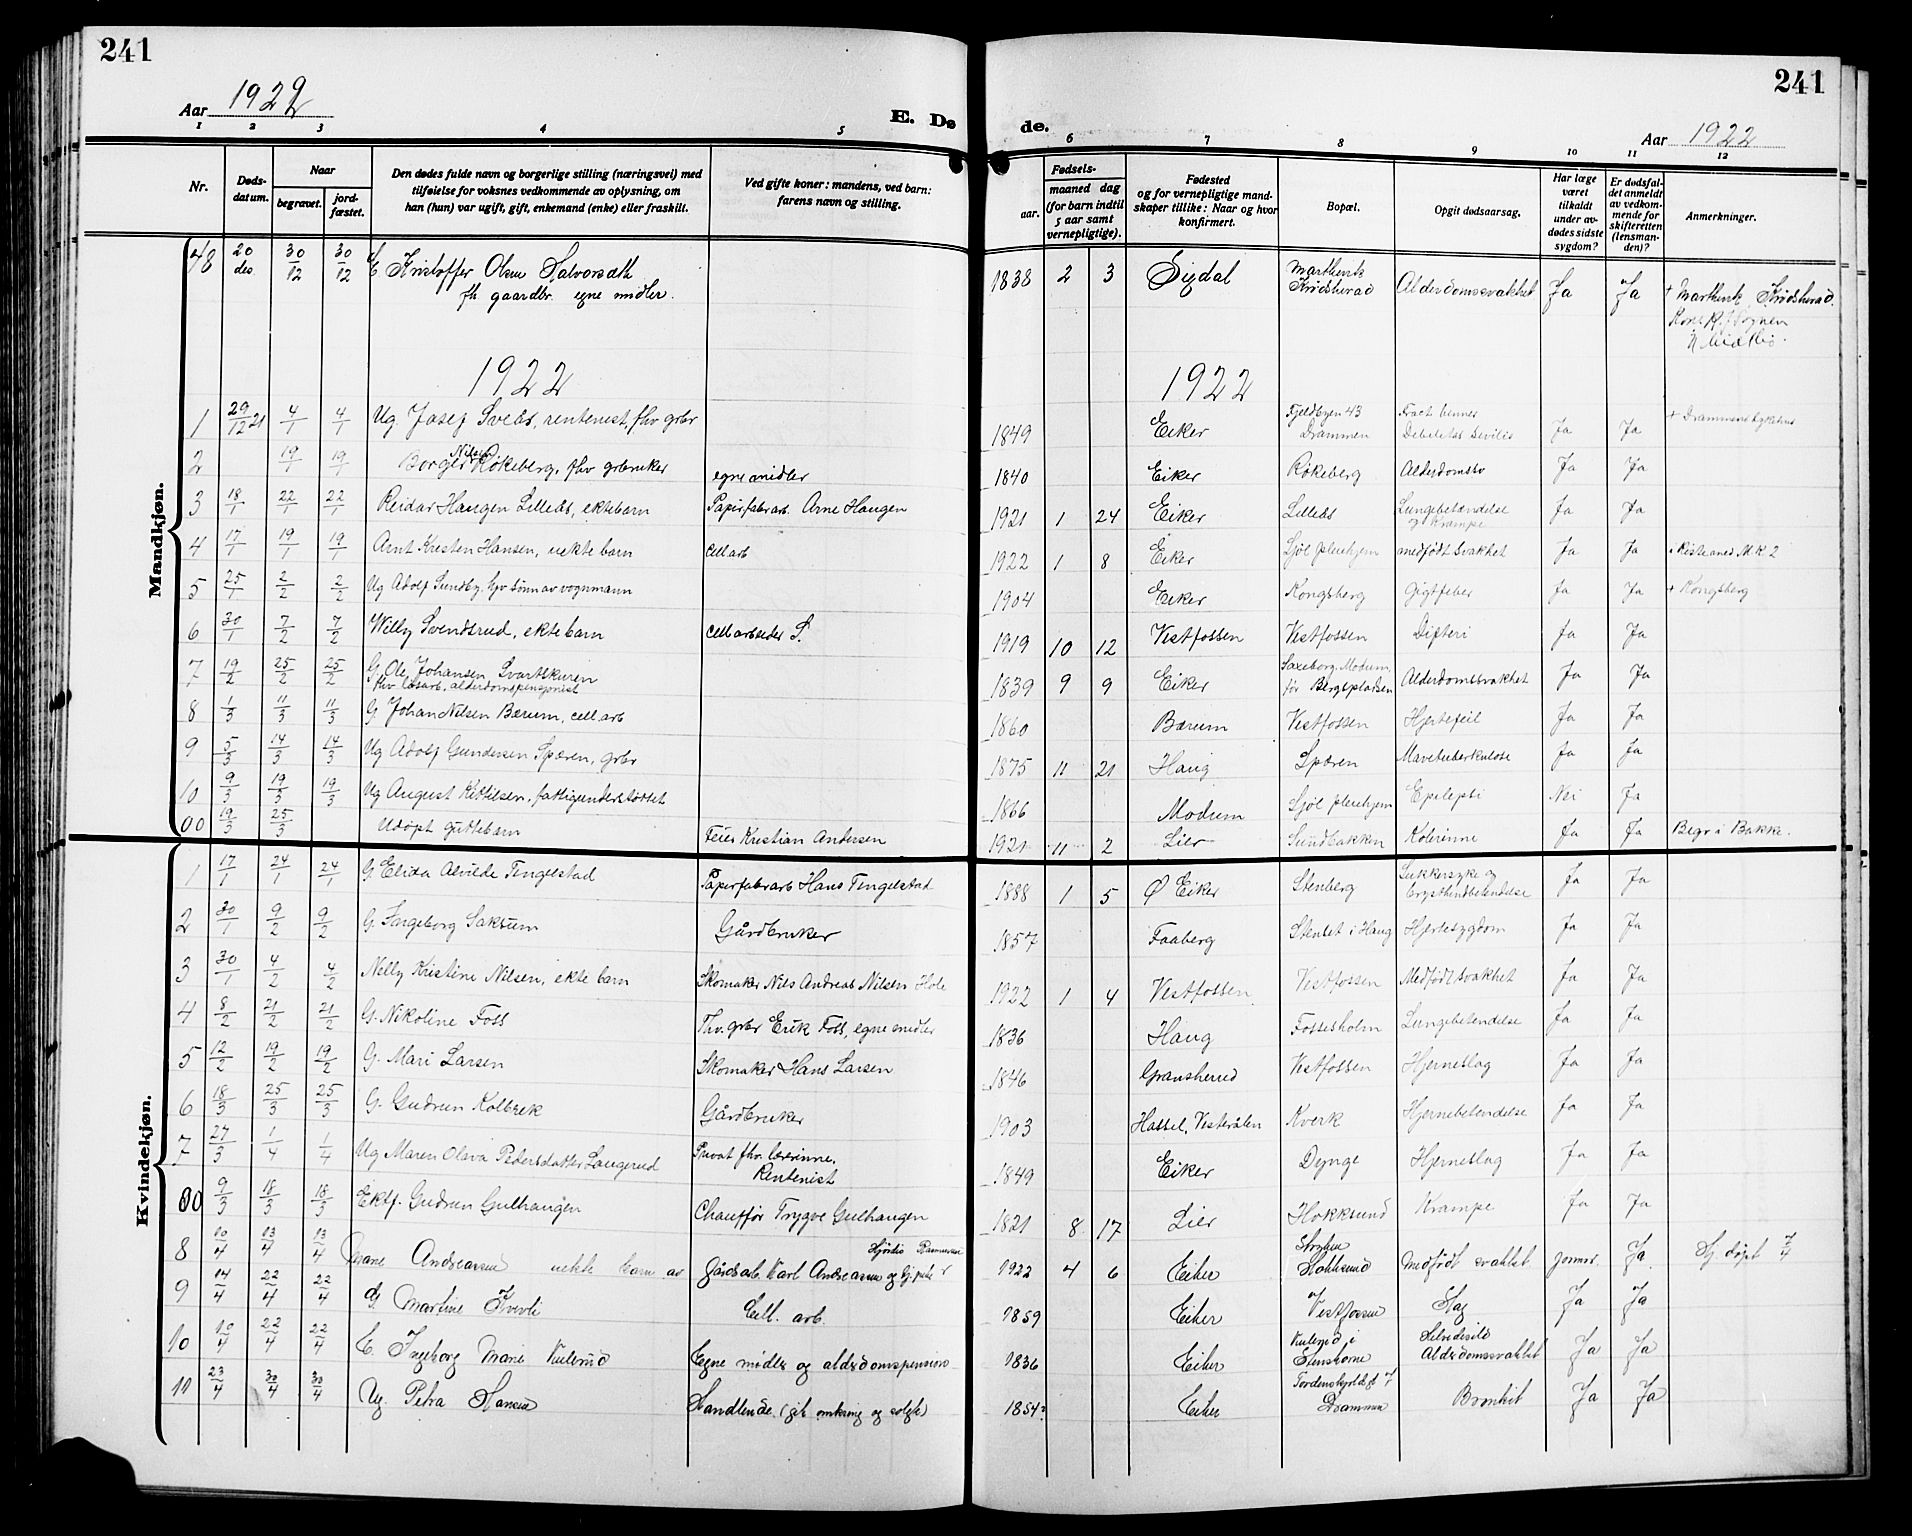 241
241
Aar 1922
E. Dø
de.
Aar 1922
1 2 3 4 5 6 7 8 9 10 11 12
Nr.
Døds-
datum.
Naar
begravet.
jord-
fæstet.
Den dødes fulde navn og borgerlige stilling (næringsvei) med
tilføielse for voksnes vedkommende av oplysning, om
han (hun) var ugift, gift, enkemand (enke) eller fraskilt.
Ved gifte koner: mandens, ved barn:
farens navn og stilling.
Fødsels-
aar.
maaned dag
(for barn indtil
5 aar samt
vernepligtige).
Fødested
og for vernepligtige mand-
skaper tillike: Naar og hvor
konfirmert.
Bopæl.
Opgit dødsaarsag.
Har læge
været
tilkaldt
under av-
dødes sidste
sygdom?
Er dødsfal-
det anmeldt
av vedkom-
mende for
skifteretten
(lensman-
den)?
Anmerkninger.
Mandkjøn.
48 20 des 30/12 30/12 E Kristoffer Olsen Halvorsæth 1838 2 3 Sigdal Marthenk Krødsherad Alderdomssvakhet Ja Ja + Marthenk, Krødsherad.
fh. gaardbr. egne midler.
1922 1922
1 29/12 21 4/1 4/1 Ug Josef Svees, rentenist, fhv grbr 1849 Eiker Fjeldbyen 43 Drammen Ja Ja + Drammens sykehus
2 19/1 19/1 Borger Nilsen Røkeberg, fhv grbruker egne midler 1840 Eiker Røkeberg Alderdomssv Ja Ja
3 18/1 22/1 22/1 Reidar Haugen Lilleås, ektebarn Papirfabarb. Arne Haugen 1921 1 24 Eiker Lilleås Lungebetændelse og Krampe Ja Ja
4 17/1 19/1 19/1 Arnt Kristen Hansen, uekte barn cell arb 1922 1 8 Eiker Sjøl pleiehjem medfødt svakhet Ja Ja
5 25/1 2/2 2/2 Ug Adolf Sundby, hjv sønn av vognmann 1904 Eiker Kongsberg Gigtfeber Ja Ja + Kongsberg
6 30/1 7/2 7/2 Willy Svendsrud, ekte barn cell arbeider S. 1919 10 12 Vestfossen Vestfossen Difteri Ja Ja
7 19/2 25/2 25/2 G. Ole Johansen Svartskuren 1839 9 9 Eiker Saxeborg, Modum, før Bergspladsen Alderdomssvakhet Ja Ja
fhv løsarb, alderdomspensjonist
8 1/3 11/3 11/3 G. Johan Nilsen Bærum, cell. arb 1860 Bærum Vestfossen Hjertefeil Ja Ja
9 5/3 14/3 14/3 Ug Adolf Gundersen Spæren, grbr 1875 11 21 Haug Spæren Mavetuberkulose Ja Ja
10 9/3 19/3 19/3 Ug August Kittilsen, fattigunderstøttet 1866 Modum Sjøl pleiehjem Epilepsi Nei Ja
00 19/3 25/3 Udøpt guttebarn Feier Kristian Andersen 1921 11 2 Lier Sundbakken Kolerinne Ja Ja Begr i Bakke.
Kvindekjøn.
1 17/1 24/1 24/1 G. Elida Alvilde Tingelstad Papirfabarb Hans Tingelstad 1888 1 5 Ø Eiker Stenberg Sukkersyke og Brysthindbetendelse Ja Ja
2 30/1 9/2 9/2 G. Ingeborg Saksum Gårdbruker 1857 Faaberg Stenset i Haug Hjertesygdom Ja Ja
3 30/1 4/2 4/2 Nelly Kristine Nilsen, ekte barn Skomaker Nils Andreas Nilsen Hole 1922 1 4 Vestfossen Vestfossen Medfødt svakhet Ja Ja
4 8/2 21/2 21/2 G. Nikoline Foss Fhv. grbr Erik Foss, egne midler 1836 Haug Fossesholm Lungebetendelse Ja Ja
5 12/2 19/2 19/2 G. Mari Larsen Skomaker Hans Larsen 1846 Gransherred Vestfossen Hjerneslag Ja Ja
6 18/3 25/3 25/3 G. Gudrun Kolbrek Gårdbruker 1903 Hassel, Vesterålen Kverk Hjernebetendelse Ja Ja
7 27/3 1/4 1/4 Ug Maren Olava Pedersdatter Langerud Privat fhv. lærerinne, Rentenist 1849 Eiker Dynge Hjerneslag Ja Ja
00 9/3 18/3 18/3 Ektf. Gudrun Gulhaugen Chauffør Trygve Gulhaugen 1821 8 17 Lier Hokksund Krampe Ja Ja
8 10/4 13/4 13/4 Andreassen uekte barn av Gårdsarb. Karl Andreassen og Hjørdis Rasmussen 1922 4 6 Eiker Hokksund Medfødt svakhet jormor. Ja Hj. døpt 7/4
9 14/4 22/4 22/4 G. Martine Kvivli Cell. arb. 1859 Eiker Vestfossen Slag Ja Ja
10 10/4 22/4 22/4 E. Ingeborg Marie Kulerud Egne midler og alderdomspension 1836 Eiker Kulerud i Stenshorne Alderdomssvakhet Ja Ja
10 23/4 30/4 30/4 Ug. Petra Hansen Handlende. (gik omkring og solgte) 1854? Eiker Drammen Bronkit Ja Ja